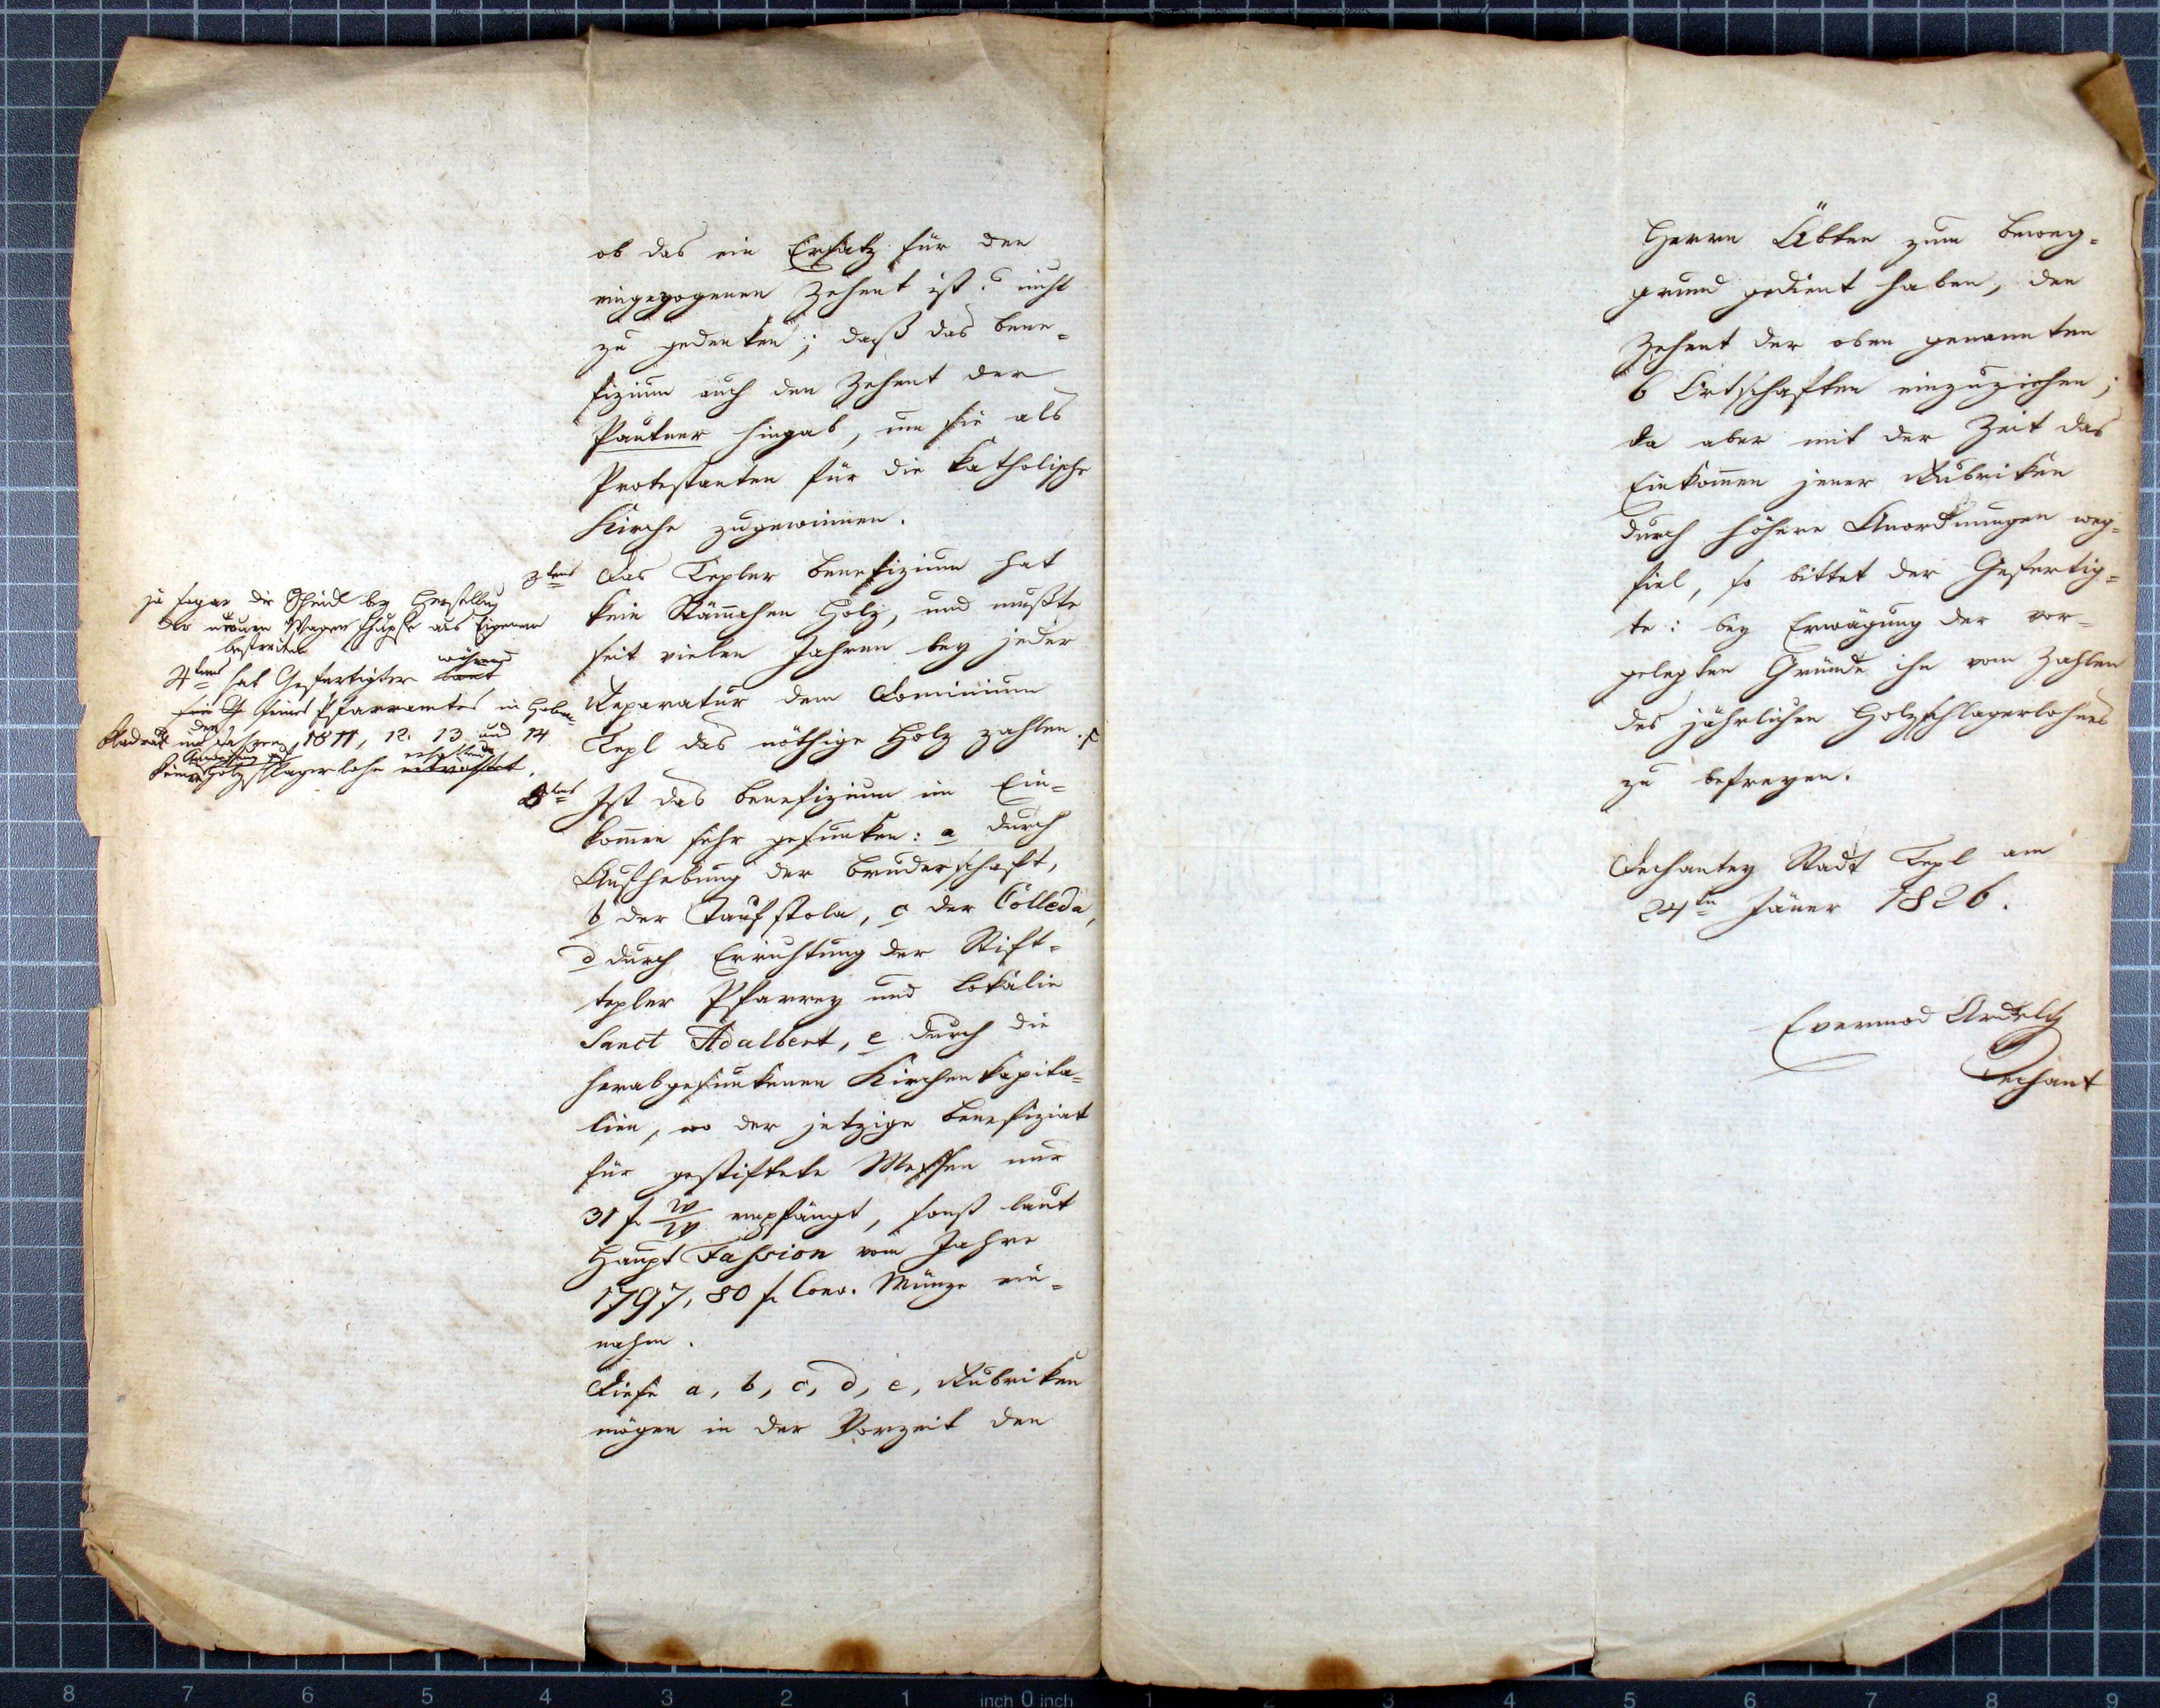 ob das ein Ersatz für den
eingezogenen Zehent ist? nicht
zu gedenken; daß das Bene-
fizium auch den Zehent der
Pautner hingab, um sie als
Protestanten für die katholische
Kirche zugewinnen.
3tens Das Tepler Benefizium hat
kein Stämchen Holz, und mußte
seit vielen Jahren bey jeder
Reparatur dem Dominium
Tepl das nöthige Holz zahlen.
ja sogar die bey Herstellung
der neuen Wagen aus Eigenem
bestreiten
4tens hat Gefertigter während
seines Pfarramtes in
den Jahren 1811, 12. 13 und 14
Holzschlagerlohn
5tens Ist das Benefizium im Ein-
komen sehr gesunken: a durch
Aufhebung der Bruderschaft,
b der Taufstola, c der Colleda,
d durch Errichtung der Stift-
tepler Pfarrey und Lokalie
Sanct Adalbert, e durch die
herabgesunkenen Kirchenkapita-
lien, wo der jetzige Benefiziat
für gestiftete Messen nur
31 f. W/W empfängt, sonst laut
Haupt Fassion vom Jahre
1797, 80 f. Conv. Münze ein-
nahm.
Diese a, b, c, d, e, Rubriken
mögen in der Vorzeit den
Herrn Äbten zum Beweg-
grund gedient haben, den
Zehent der oben genannten
6 Ortschaften einzuziehen;
da aber mit der Zeit das
Einkomen jener Rubriken
durch höhere Anordnungen weg-
fiel, so bittet der Gefertig-
te: bey Erwägung der vor-
gelegten Gründe ihn vom Zahlen
des jährlichen Holzschlagerlohnes
zu befreyen.
Dechantey Stadt Tepl am
24ten Jäner 1826.
Evermod
Dechant